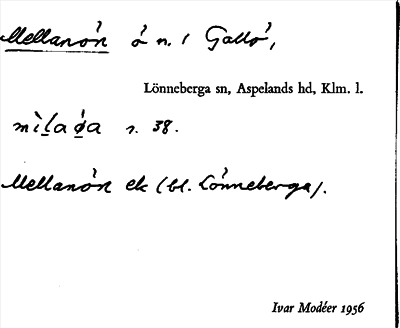 Mellanön ö n. i Gallö,
Lönneberga sn, Aspelands hd, Klm. l.
mìlaǿa s. 38.
Mellanön ek (bl. Lönneberga).
Ivar Modéer 1956